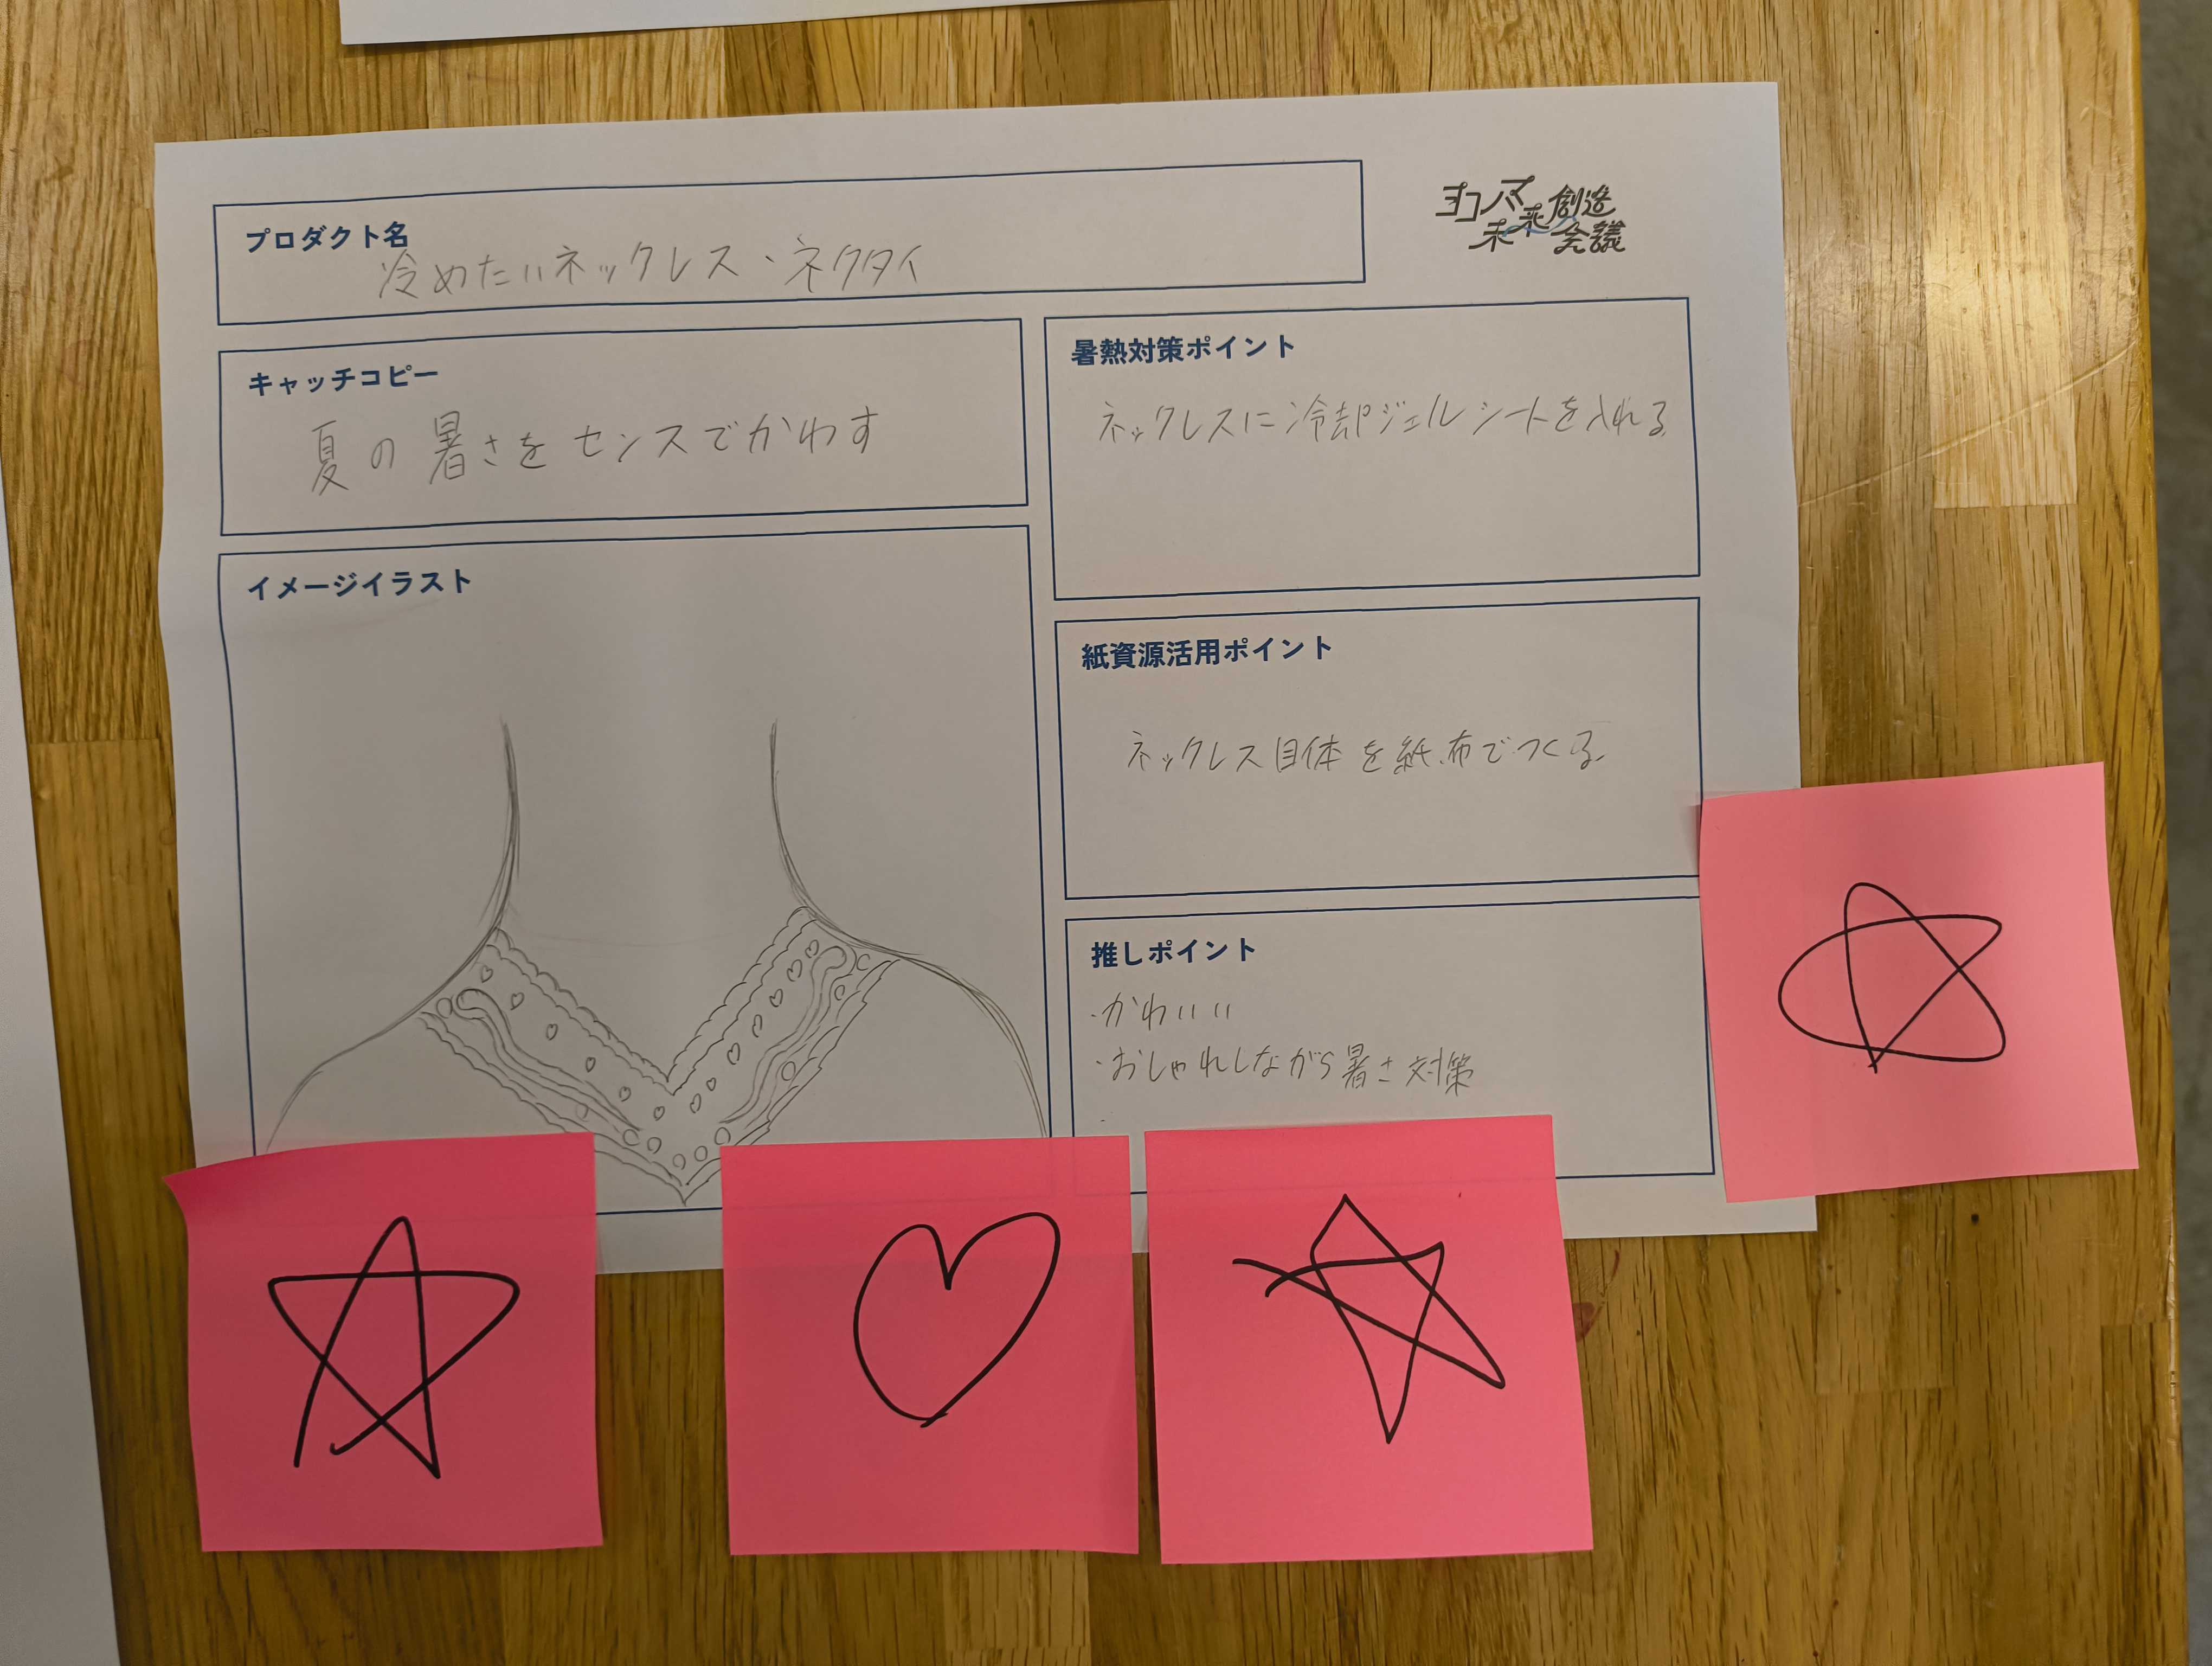 ヨコハマ
未来創造
会議
プロダクト名
冷めたいネックレス・ネクタイ
キャッチコピー
夏の暑さをセンスでかわす
イメージイラスト
暑熱対策ポイント
ネックレスに冷却ジェルシートを入れる
紙資源活用ポイント
ネックレス自体を紙布でつくる
推しポイント
・かわいい
・おしゃれしながら暑さ対策
・